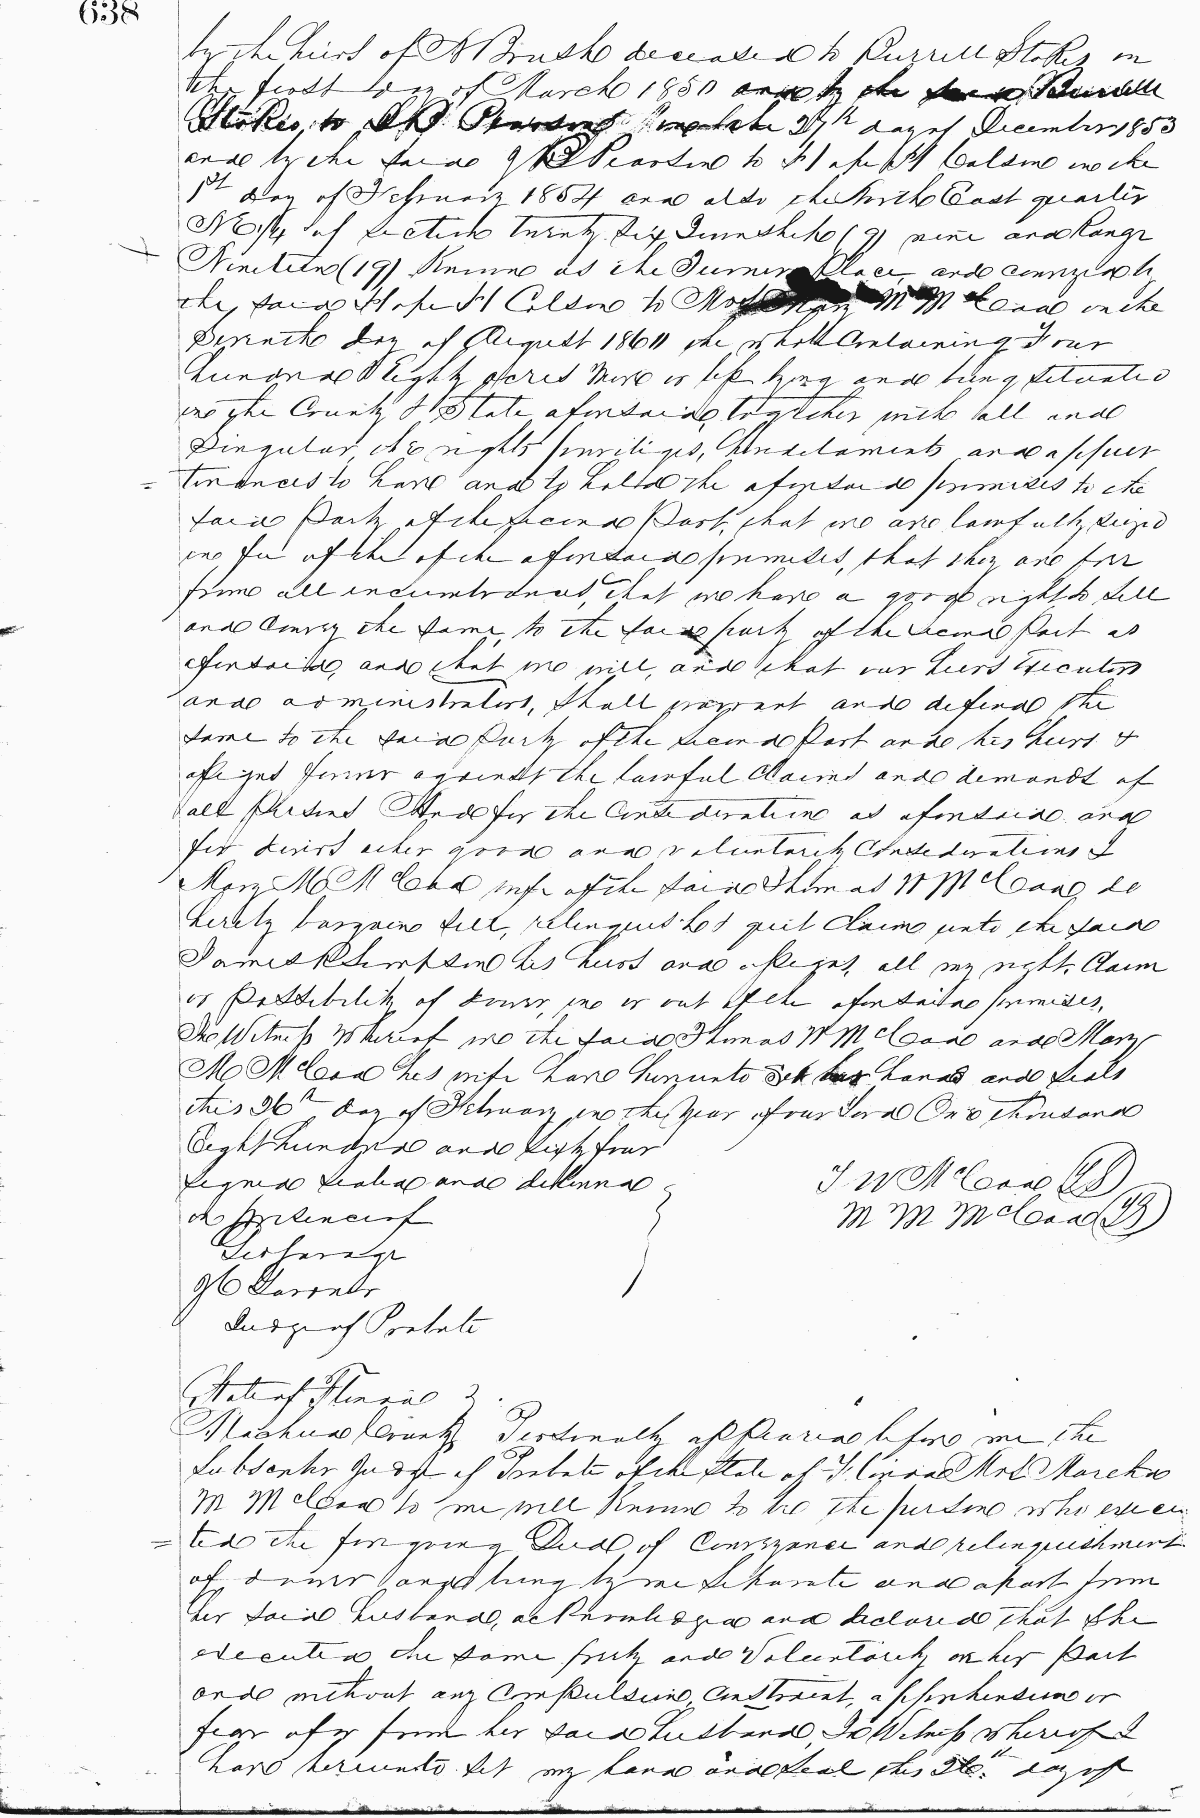 638
by the heirs of N Brush deceased to Burrell Stokes on
the first day of March 1850 and by the said Burrell
Stokes to Pearson on the 27th day of December 1853
and by the said J Pearson to Hope H Colson on the
1st day of February 1854 and also the North East quarter
NE 1/4 of section twenty six Township (9) nine and Range
Nineteen (19) Known as the Turner Place and conveyed by
the said Hope H Colson to Mrs Mary M McCaa on the
Seventh day of August 1860 the whole Containing Four
hundred & Eighty acres More or less lying and being situated
in the County & State aforsaid, together with all and
Singular the rights priviliges, hereditaments and appur
tinances to have and to hold the aforsaid premises to the
said Party of the second Part, that we are lawfully seized
in fee of the of the aforsaid premises, that they are free
from all incumbrances, that we have a good right to sell
and Convey the same to the said party of the second Part as
aforsaid, and that we will, and that our heirs Executors
and administrators, shall warrant and defend the
same to the said Party of the second Part and his heirs &
assigns forever against the lawful Claims and demands of
all Persons And for the Consideration as aforsaid and
for divers other good and voluntarily Considerations I
Mary M McCaa wife of the said Thomas W McCaa do
hereby bargain sell, relinquish & quit Claim unto the said
James K Simpson his heirs and assigns, all my right, Claim
or Possibility of dower, in or out of the aforsaid premises,
In Witness Whereof we the said Thomas W McCaa and Mary
M McCaa his wife have hereunto set hands and seals
this 26th day of February in the Year of our Lord One thousand
Eight hundred and sixty four
signed sealed and delivered
in presence of
T W McCaa (LS)
M M McCaa (LS)
Judge of Probate
State of Florida
Alachua County Personally appeared before me the
subscriber Judge of Probate of the State of Florida Mrs
M McCaa to me well Known to be the person who execu
ted the foregoing Deed of Conveyance and relinquishment
of dower and being by me seperate and apart from
her said husband, acknowledged and declared that she
executed the same freely and Voluntarily on her Part
and without any Compulsion, Constraint, apprehension or
fear of or from her said husband, In Witness whereof I
have hereunto set my hand and Seal this 26th day of